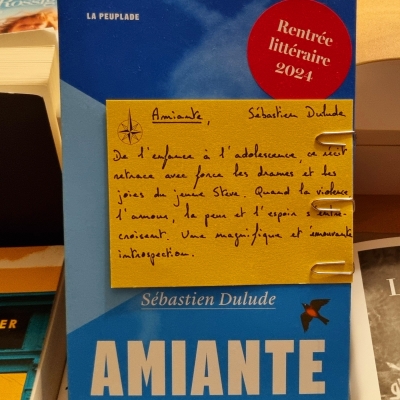 LA PEUPLADE
Rentrée
littéraire
2024
Amiante, Sébastien Dulude
De l'enfance à l'adolescence, ce récit
retrace avec force les drames et les
joies du jeune Steve. Quand la violence
l'amour, la peur et l'espoir s'entre-
croisent. Une magnifique et émouvante
introspection.
Sébastien Dulude
AMIANTE
ER
L